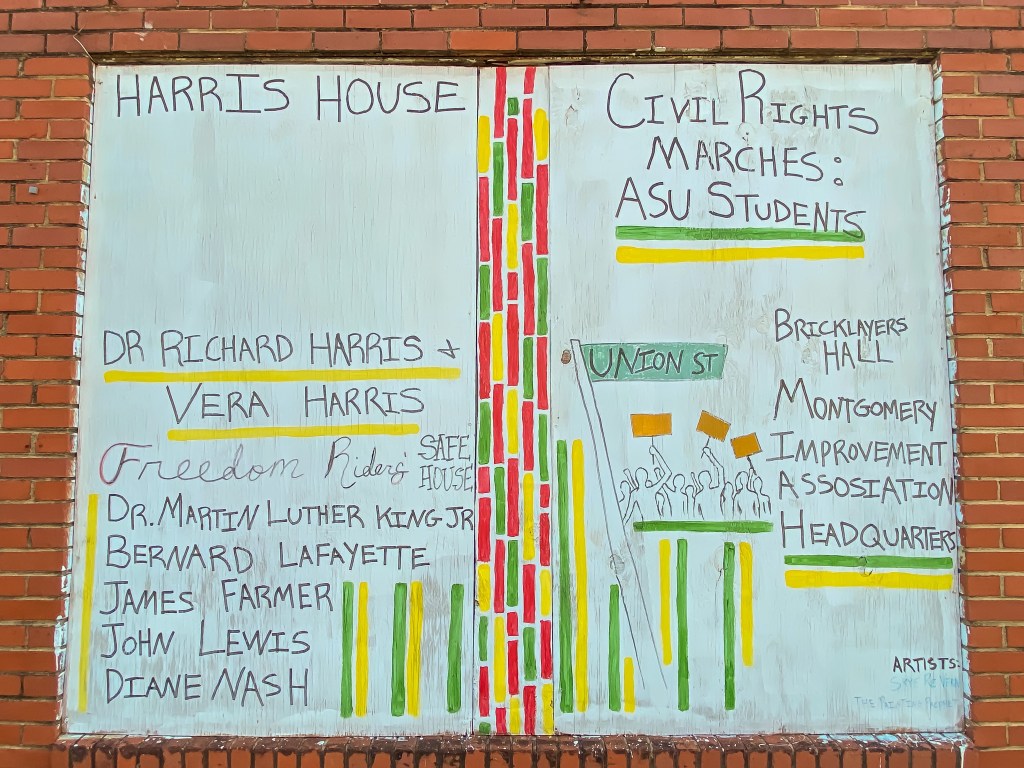 HARRIS HOUSE
DR RICHARD HARRIS +
VERA HARRIS
Freedom Riders' SAFE HOUSE
DR. MARTIN LUTHER KING JR
BERNARD LAFAYETTE
JAMES FARMER
JOHN LEWIS
DIANE NASH
CIVIL RIGHTS
MARCHES:
ASU STUDENTS
UNION ST
BRICKLAYERS
HALL
MONTGOMERY
IMPROVEMENT
ASSOSIATION
HEADQUARTERS
ARTISTS:
THE